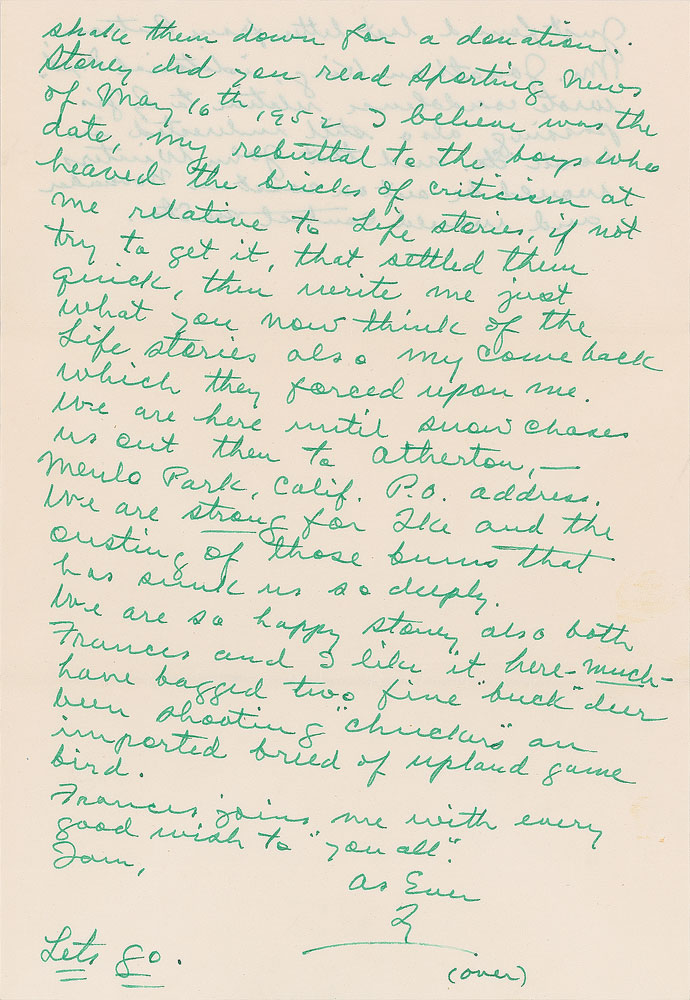 shake them down for a donation.
Stoney did you read Sporting News
of May 16th, 1952 I believe was the
date, my rebuttal to the boys who
heaved the bricks of criticism at
me relative to Life stories, if not
try to get it, that settled them
quick, then write me just
what you now think of the
Life stories also my come back
which they forced upon me.
We are here until snow chases
us out then to Atherton, —
Menlo Park, Calif. P.O. address.
We are strong for Ike and the
ousting of those bums that
has sunk us so deeply.
We are so happy stoney also both
Frances and I like it here - much -
have bagged two fine "buck" deer
been shooting "chuckars" an
imported breed of upland game
bird.
Frances joins me with every
good wish to "you all".
As Ever
Ty
Lets go.
(over)